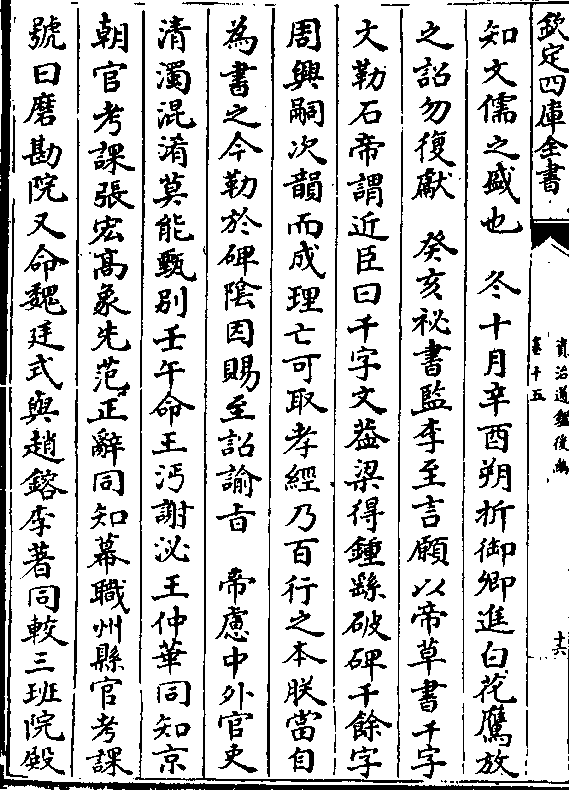 欽定四庫全書
資治通鑑後編
卷十五
十六
知文儒之盛也　冬十月辛酉朔折御卿進白花鷹放
之詔勿復獻　癸亥祕書監李至言願以帝草書千字
文勒石帝謂近臣曰千字文葢梁得鍾繇破碑千餘字
周興嗣次韻而成理亡可取孝經乃百行之本朕當自
為書之今勒於碑陰因賜至詔諭㫖　帝慮中外官吏
清濁混淆莫能甄别壬午命王沔謝泌王仲華同知京
朝官考課張宏高象先范正辭同知幕職州縣官考課
號曰磨勘院又命魏廷式與趙鎔李著同較三班院殿